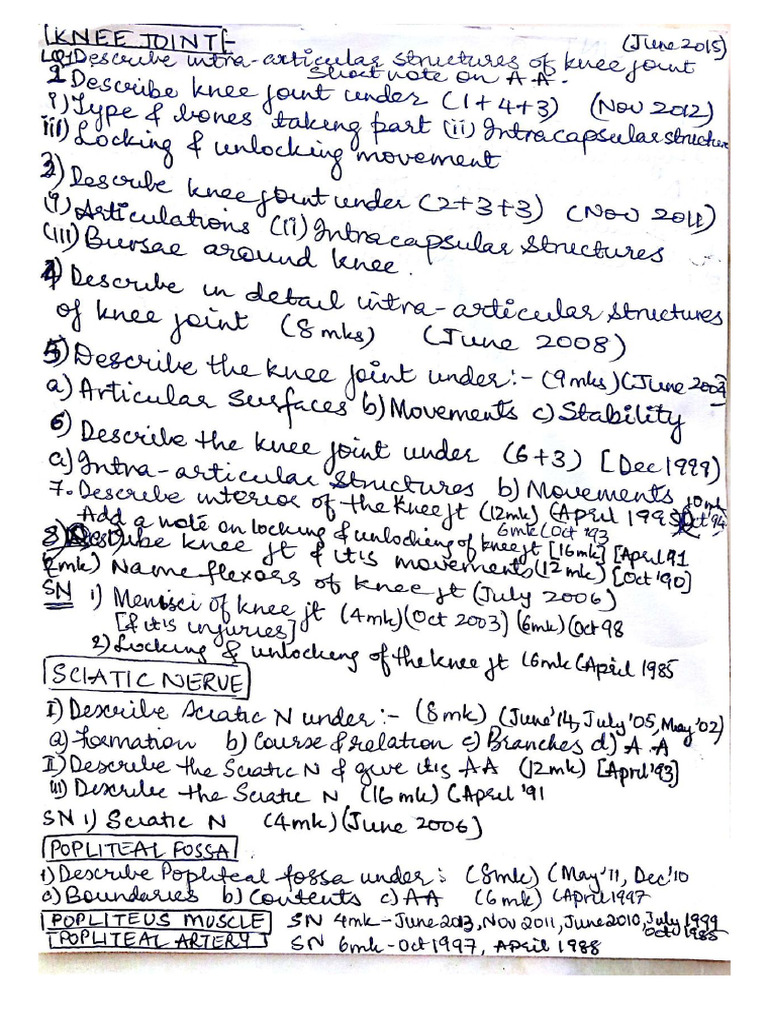 KNEE JOINT:-
LQ-Describe intra-articular structures of knee joint (June 2015)
Short note on A.A.
2 Describe knee joint under (1+4+3) (Nov 2012)
i) Type & bones taking part (ii) Intracapsular structure
iii) Locking & unlocking movement
3) Describe knee joint under (2+3+3) (Nov 2011)
(i) Articulations (ii) Intracapsular structures
(iii) Bursae around knee.
4) Describe in detail intra-articular structures
of knee joint (8mks) (June 2008)
5) Describe the knee joint under:- (9mks) (June 2003)
a) Articular surfaces b) Movements c) Stability
6) Describe the knee joint under (6+3) [Dec 1999)
a) Intra-articular structures b) Movements
7. Describe interior of the Knee jt (12mk) (April 1995) 10mk Oct '94
Add a note on locking & unlocking of knee jt [16mk] [April 91
6mk (Oct '93
8) Describe knee jt & it's movements (12mk) [Oct '90]
(2mk) Name flexors of knee jt (July 2006)
SN i) Menisci of knee jt (4mk) (Oct 2003) (6mk) (Oct 98
[& it's injuries]
2) Locking & unlocking of the knee jt (6mk (April 1985
SCIATIC NERVE
I) Describe Sciatic N under:- (8mk) (June '14, July '05, May '02)
a) formation b) Course & relation c) Branches d) A.A
II) Describe the Sciatic N & give it's AA (12mk) [April '93]
iii) Describe the Sciatic N (16mk) (April '91
SN i) Sciatic N (4mk) (June 2006)
POPLITEAL FOSSA
1) Describe Popliteal fossa under: (8mk) (May '11, Dec '10
a) Boundaries b) Contents c) AA (6mk) (April 1997
POPLITEUS MUSCLE SN 4mk-June 2013, Nov 2011, June 2010, July 1999
Oct 1985
POPLITEAL ARTERY SN 6mk-Oct 1997, April 1988